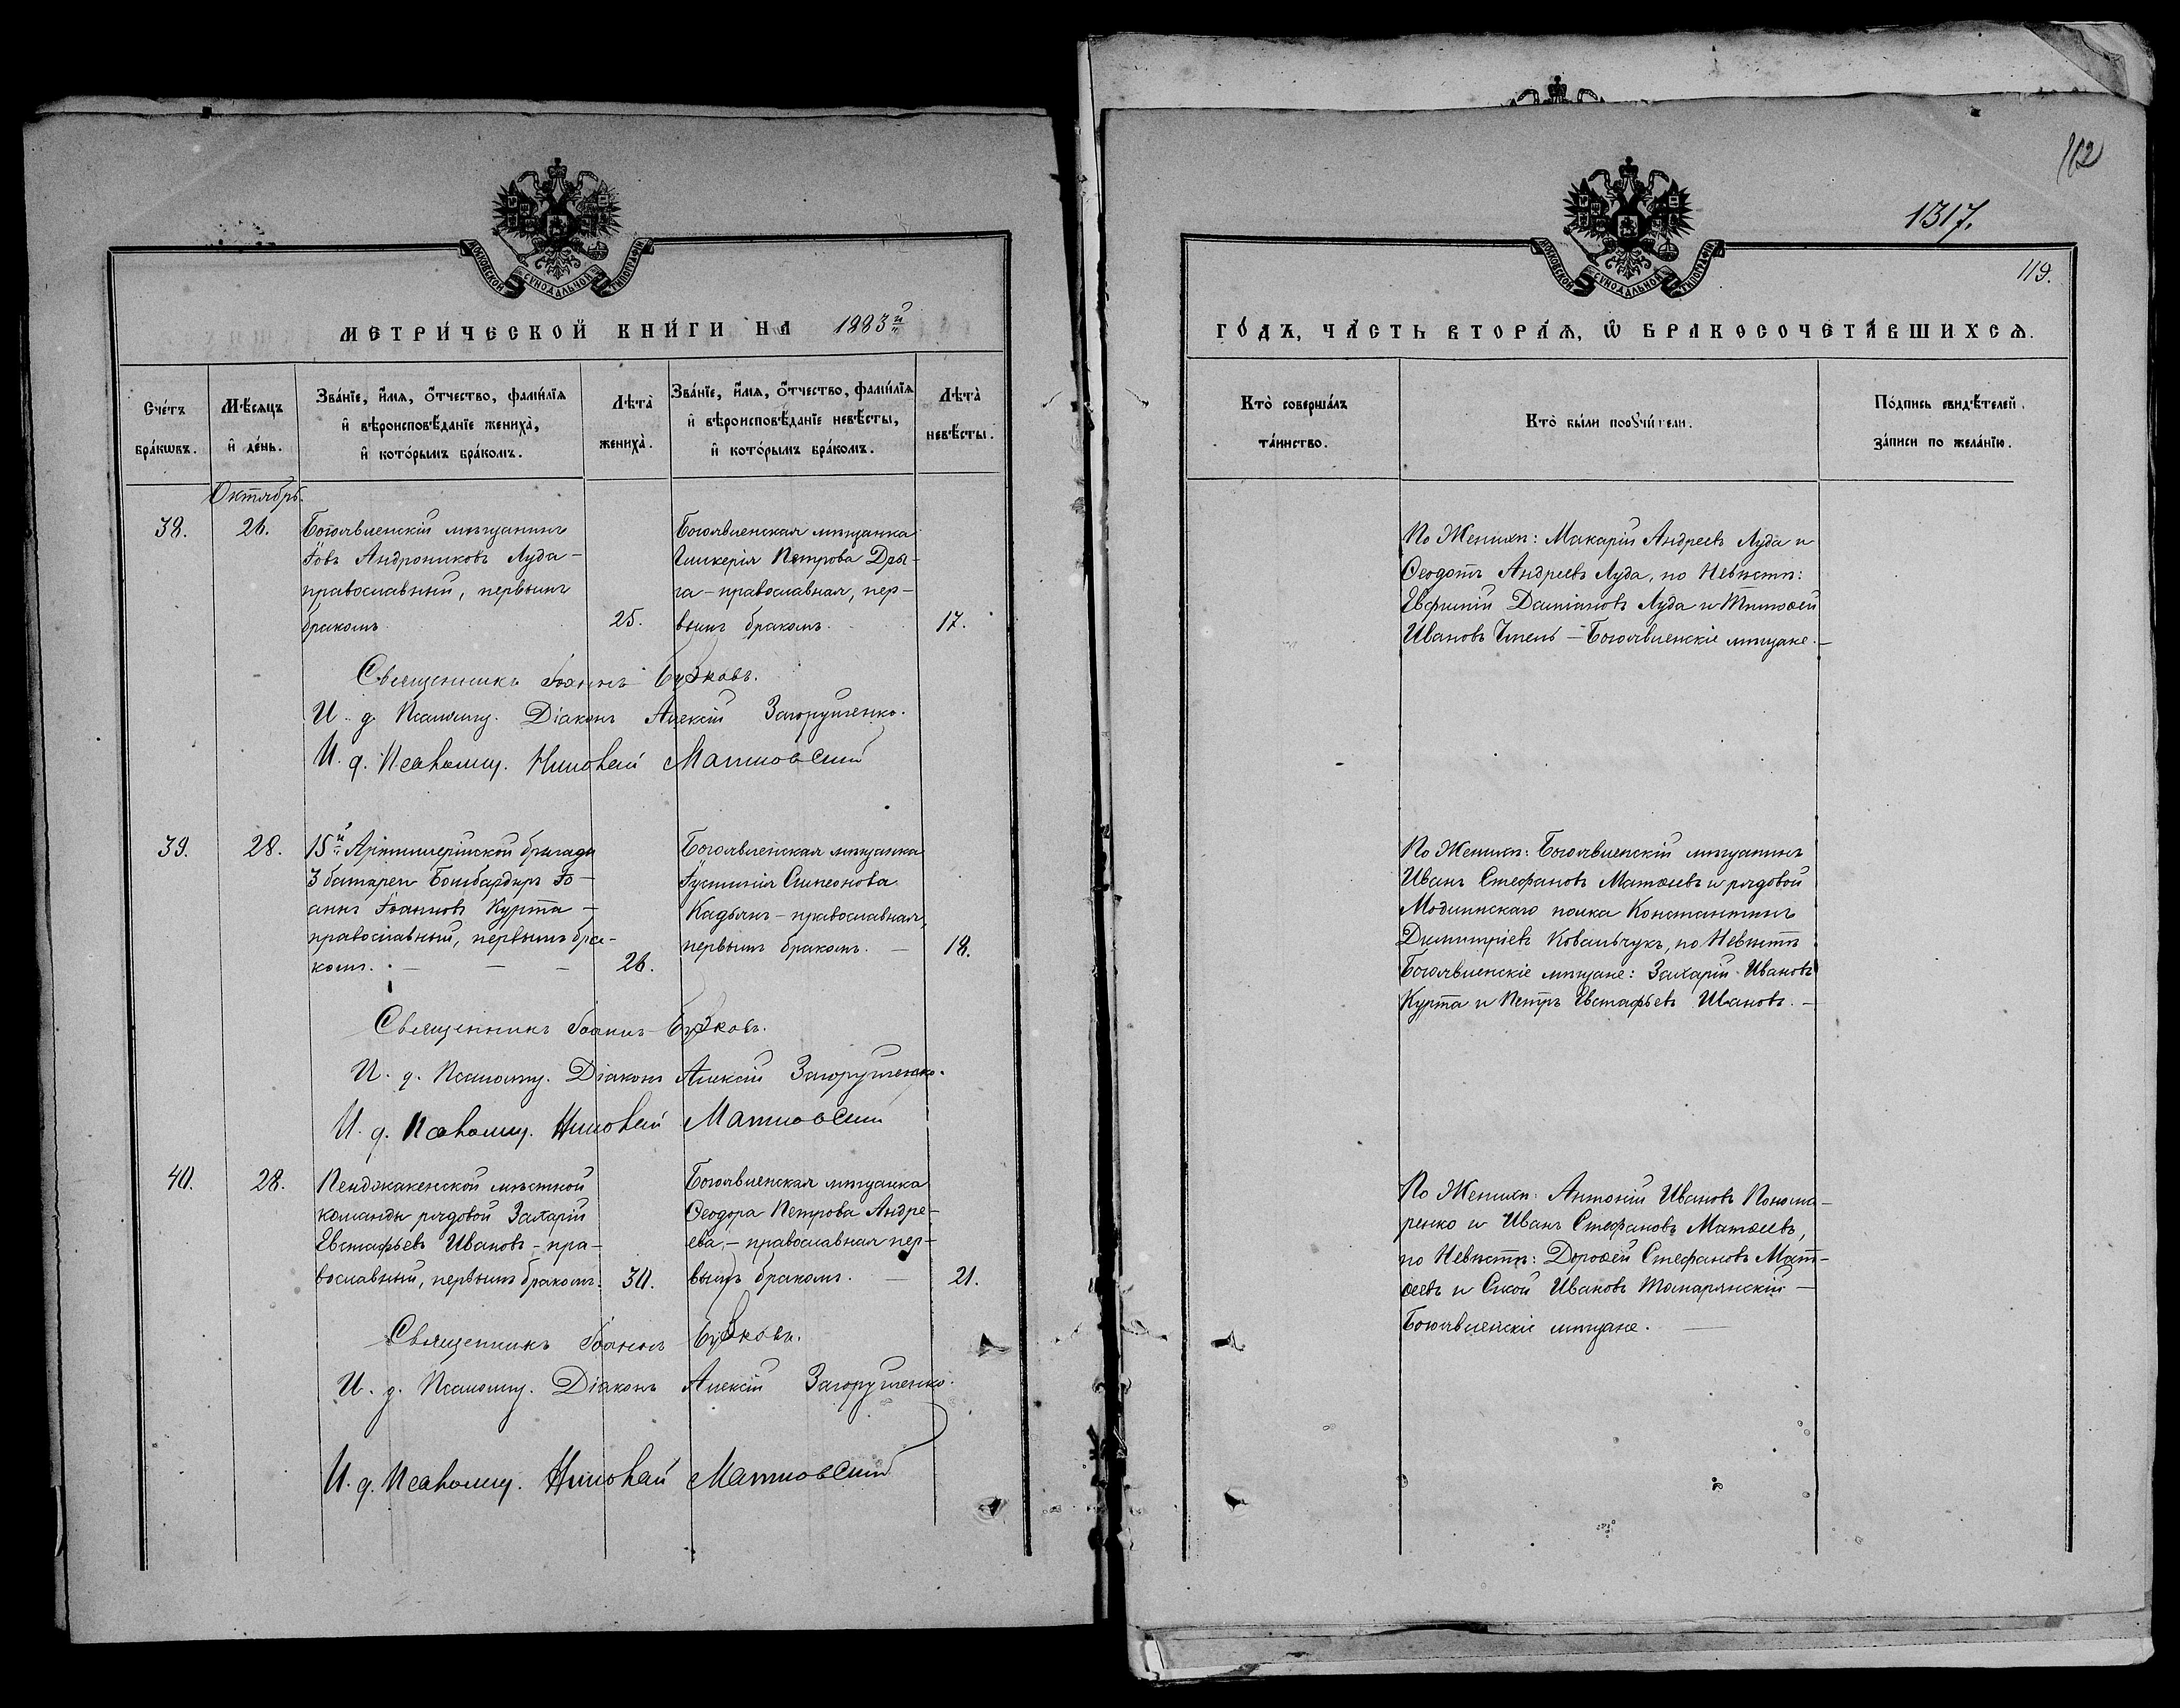 МОСКОВСКОЙ СѴНОДАЛЬНОЙ ТИПОГРАФІИ
МЕТРИ́ЧЕСКОЙ КНИ́ГИ НА 1883й
Сче́тъ бра́кѡвъ.
Мѣ́сяцъ и҆ де́нь.
Зва́нїе, и҆́мя, о҆́тчество, фамѝлїя
и҆ вѣроисповѣ́данїе жениха̀,
и҆ кото́рымъ бра́комъ.
Лѣта̀ жениха̀.
Зва́нїе, и҆́мя, о҆́тчество, фамѝлїя
и҆ вѣроисповѣ́данїе невѣ́сты,
и҆ кото́рымъ бра́комъ.
Лѣта̀ невѣ́сты.
Октябрь.
38.
26.
Богоявленскій мѣщанинъ
Іовъ Андрониковъ Луда –
православный, первымъ
бракомъ
25.
Богоявленская мѣщанка
Гликерія Петрова Дры-
га – православная, пер-
вымъ бракомъ.
17.
Священникъ Іоаннъ Бузковъ.
И. д. Псаломщ. Діаконъ Алексій Загорушенко.
И. д. Псаломщ. Николай Матковскій
39.
28.
15й Артиллерійской бригады
3 батареи Бомбардиръ Іо-
аннъ Іоанновъ Курта –
православный, первымъ бра-
комъ. – – –
26.
Богоявленская мѣщанка
Іустинія Симеонова
Кадьянъ – православная,
первымъ бракомъ. –
18.
Священникъ Іоаннъ Бузковъ.
И. д. Псаломщ. Діаконъ Алексій Загорушенко.
И. д. Псаломщ. Николай Матковскій
40.
28.
Пенджакенской мѣстной
команды рядовой Захарій
Евстафьевъ Ивановъ – пра-
вославный, первымъ бракомъ.
30.
Богоявленская мѣщанка
Ѳеодора Петрова Андре-
ева, – православная пер-
вымъ бракомъ. –
21.
Священникъ Іоаннъ Бузковъ.
И. д. Псаломщ. Діаконъ Алексій Загорушенко.
И. д. Псаломщ. Николай Матковскій
112
1317.
МОСКОВСКОЙ СѴНОДАЛЬНОЙ ТИПОГРАФІИ
119.
ГО́ДЪ, ЧА́СТЬ ВТОРА́Я, Ѡ҆ БРАКОСОЧЕТА́ВШИХСЯ.
Кто̀ соверша́лъ
та́инство.
Кто̀ бы́ли порꙋчи́тели.
По́дпись свидѣ́телей
за́писи по жела́нїю.
По Женихѣ: Макарій Андреевъ Луда и
Ѳеодотъ Андреевъ Луда, по Невѣстѣ:
Евфимій Даміановъ Луда и Тимоѳей
Ивановъ Чмель – Богоявленскіе мѣщане. –
По Женихѣ: Богоявленскій мѣщанинъ
Иванъ Стефановъ Матѳеевъ и рядовой
Модлинскаго полка Константинъ
Димитріевъ Ковальчукъ, по Невѣстѣ
Богоявленскіе мѣщане: Захарій Ивановъ
Курта и Петръ Евстафьевъ Ивановъ. –
По Женихѣ: Антоній Ивановъ Понома-
ренко и Иванъ Стефановъ Матѳеевъ,
по Невѣстѣ: Дороѳей Стефановъ Мат-
ѳеевъ и Сисой Ивановъ Томарянскій –
Богоявленскіе мѣщане. –